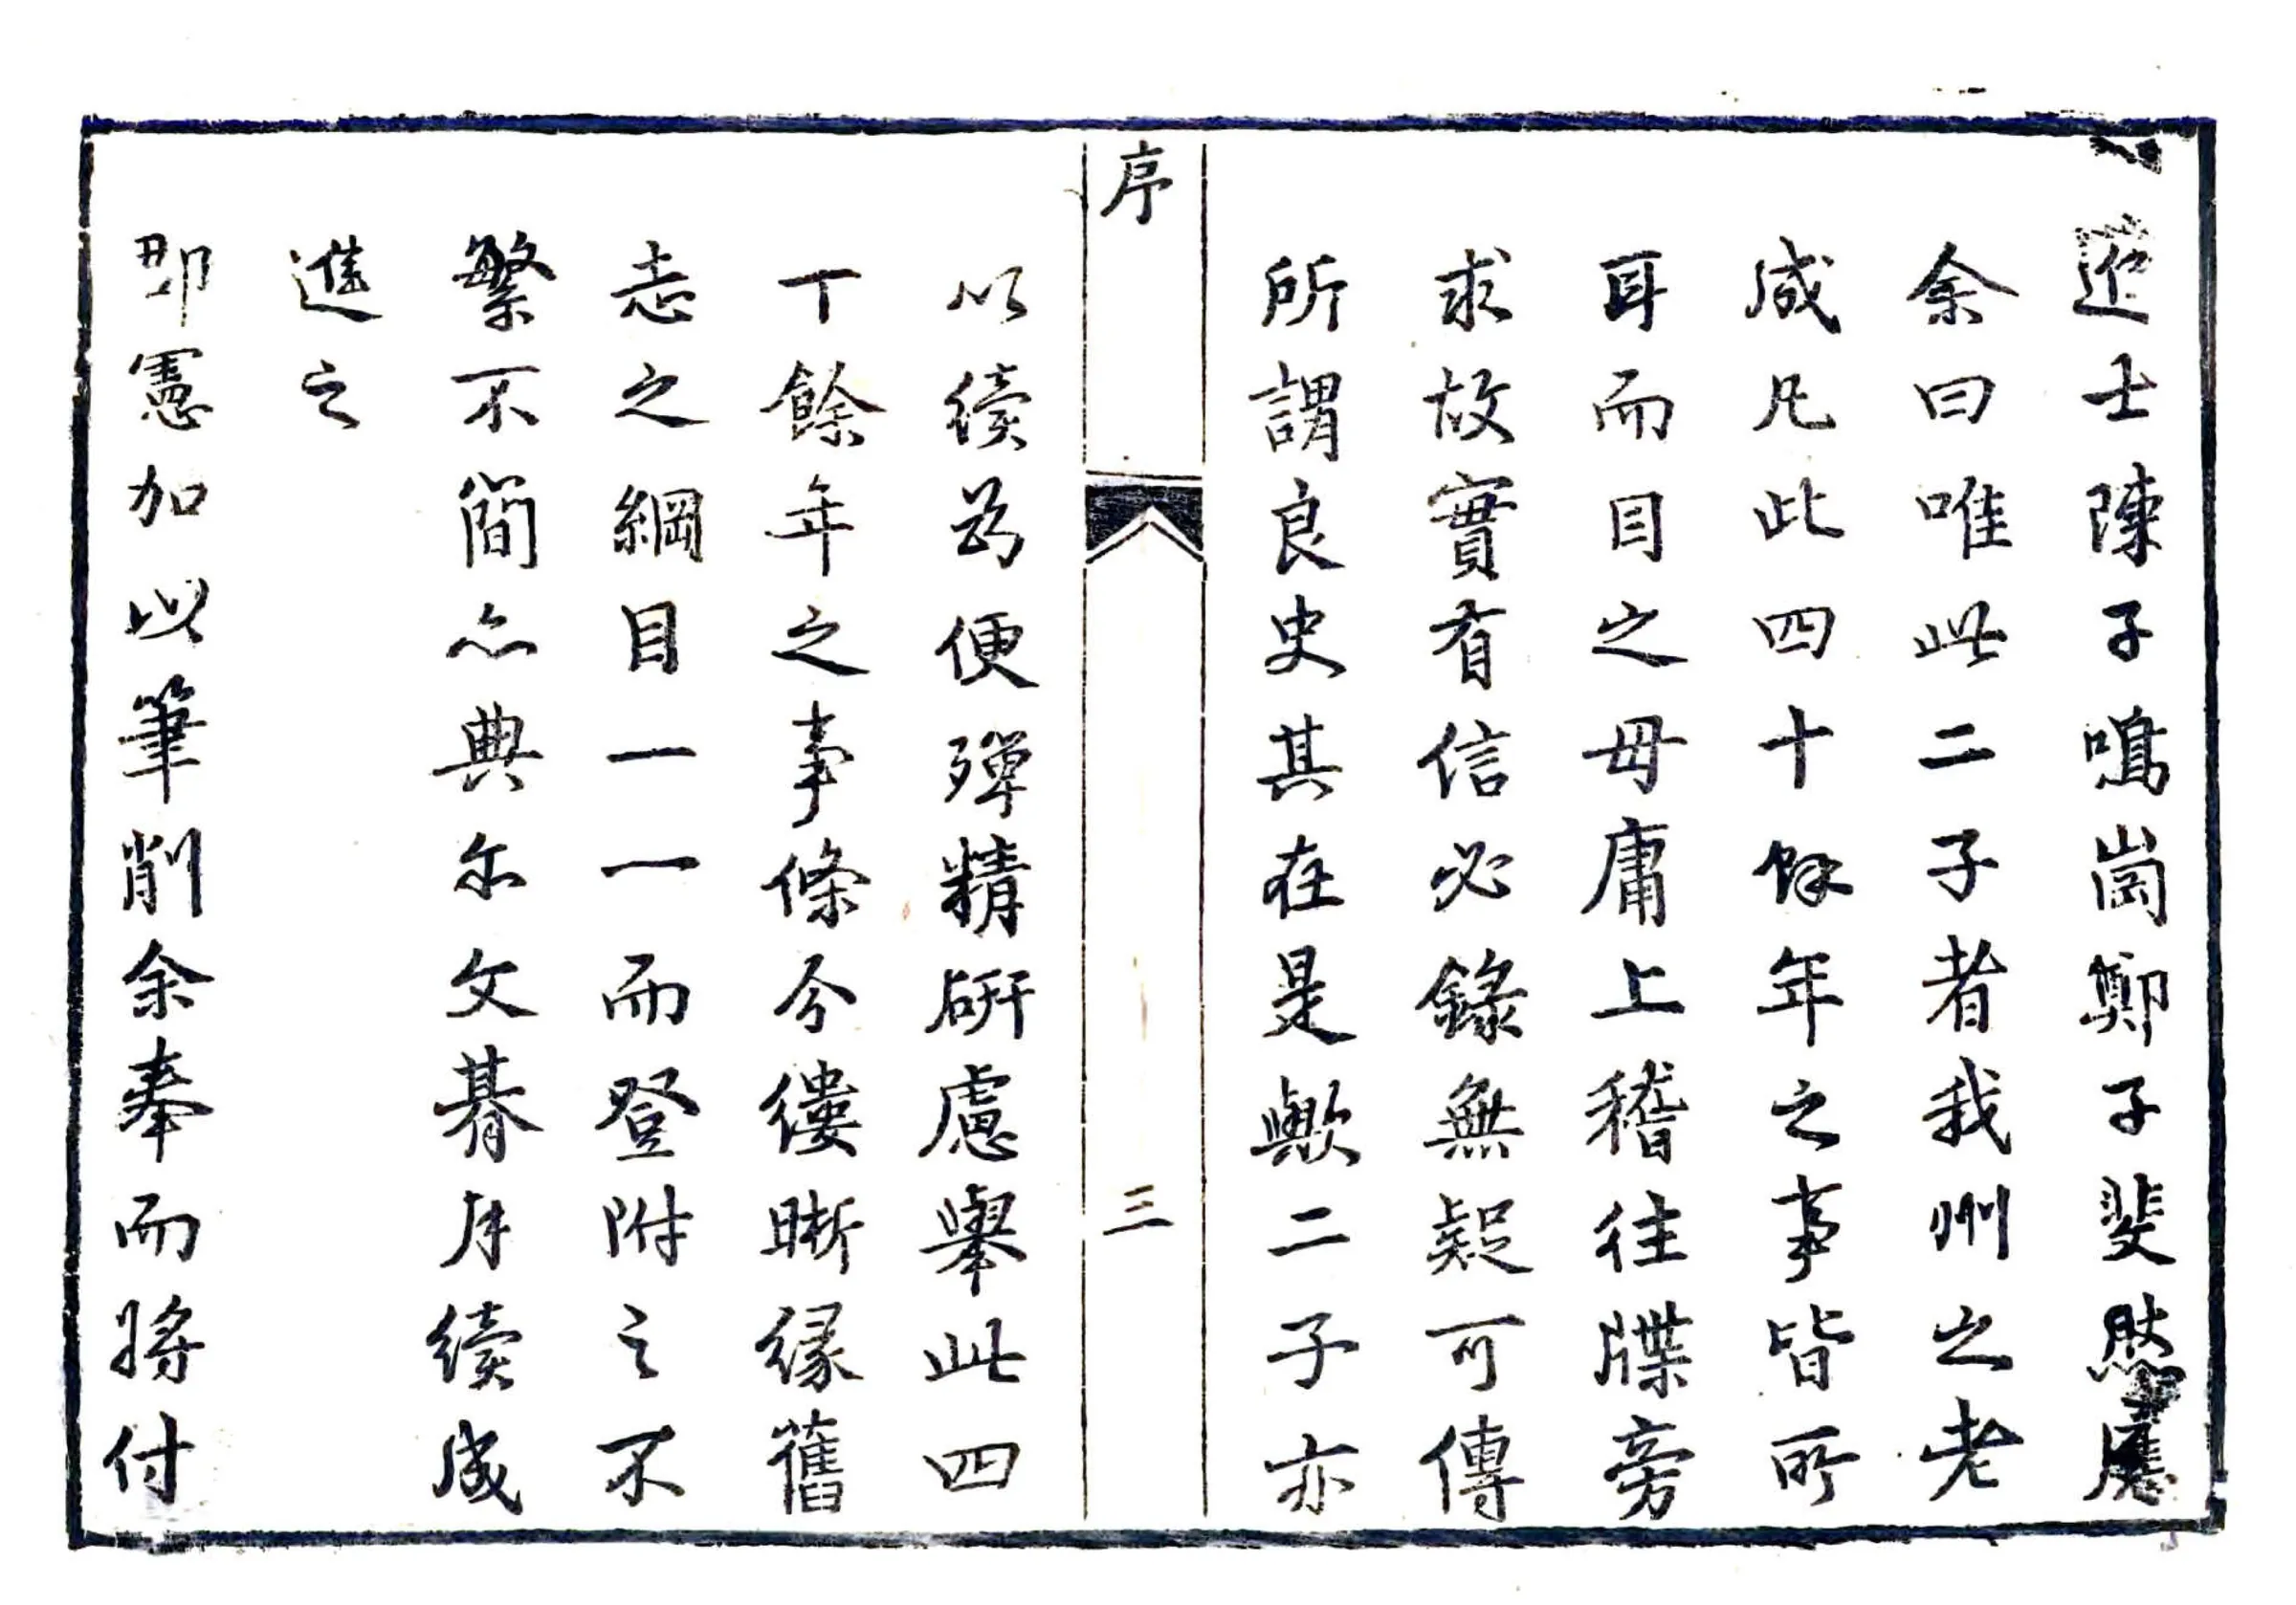 進士陳子鳴崗鄭子斐然應
余曰唯此二子者我州之老
成凡此四十餘年之事皆所
耳而目之毋庸上稽往牒旁
求故實有信必錄無疑可傳
所謂良史其在是歟二子亦
序
三
以續為便殫精研慮舉此四
十餘年之事條分縷晰緣舊
志之綱目一一而登附之不
繁不簡亦典亦文朞月續成
進之
郡憲加以筆削余奉而將付